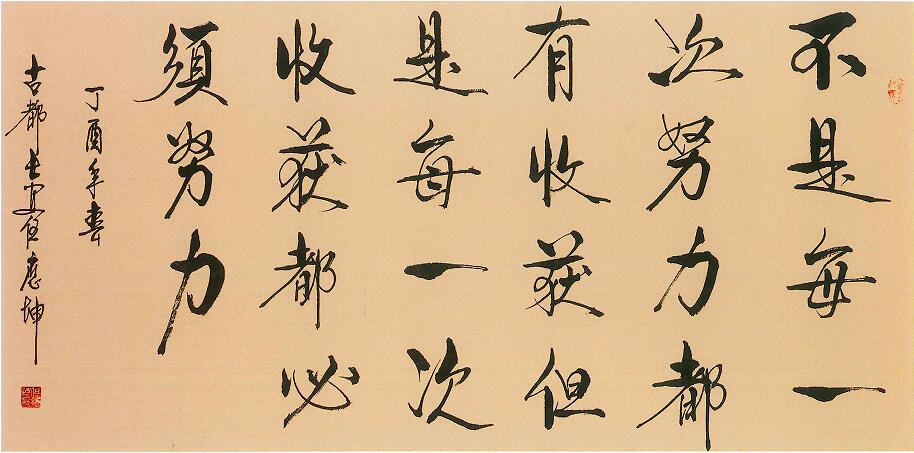 不是每一
次努力都
有收获但
是每一次
收获都必
須努力
丁酉年春
古都长安任應坤